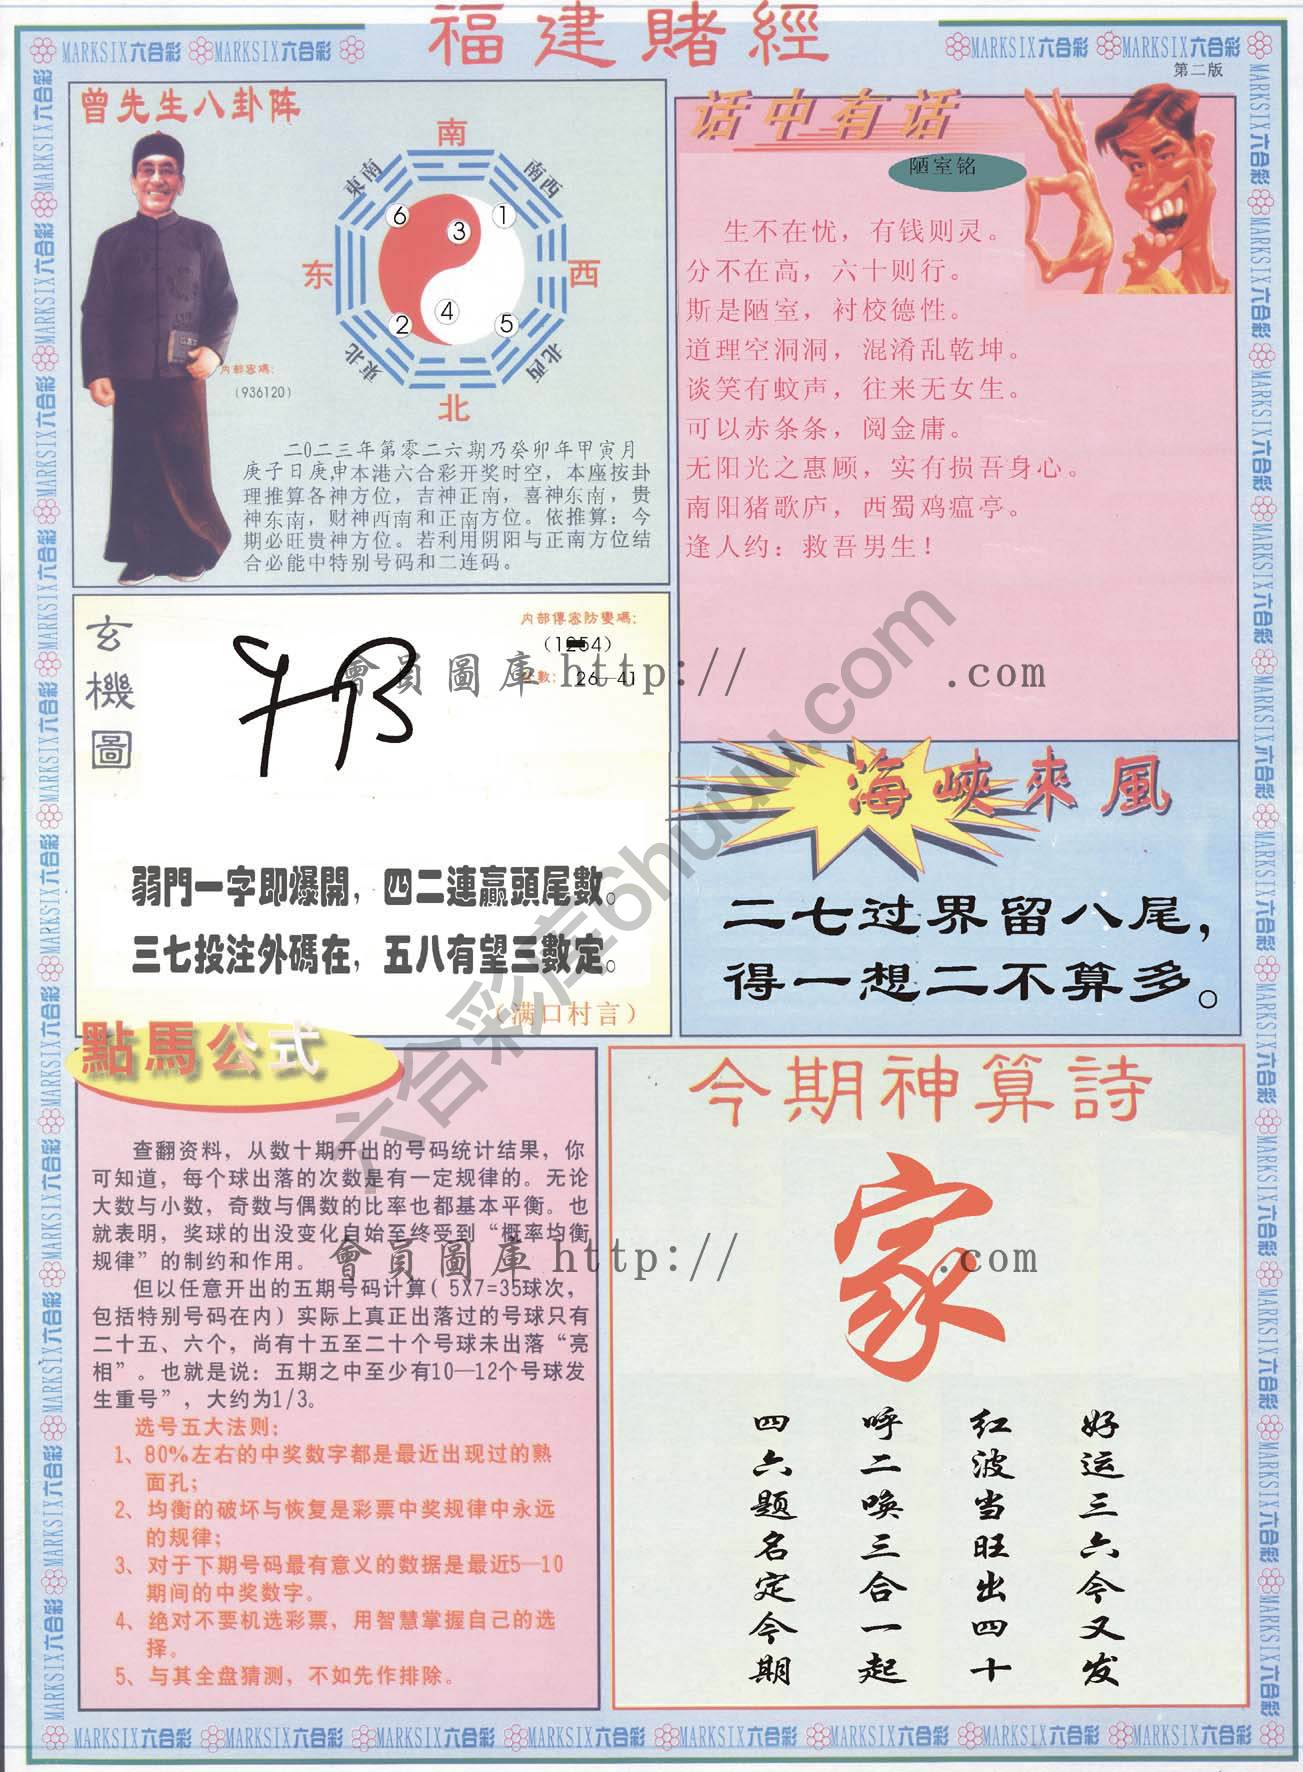 福建賭經
MARKSIX六合彩 MARKSIX六合彩
MARKSIX六合彩 MARKSIX六合彩
第二版
曾先生八卦阵
南
東南
南西
6
1
3
东
西
4
2
5
東北
北西
北
内部密碼：
（936120）
二0二三年第零二六期乃癸卯年甲寅月
庚子日庚申本港六合彩开奖时空，本座按卦
理推算各神方位，吉神正南，喜神东南，贵
神东南，财神西南和正南方位。依推算：今
期必旺贵神方位。若利用阴阳与正南方位结
合必能中特别号码和二连码。
话中有话
陋室铭
生不在忧，有钱则灵。
分不在高，六十则行。
斯是陋室，衬校德性。
道理空洞洞，混淆乱乾坤。
谈笑有蚊声，往来无女生。
可以赤条条，阅金庸。
无阳光之惠顾，实有损吾身心。
南阳猪歌庐，西蜀鸡瘟亭。
逢人约：救吾男生！
玄機圖
内部傳密防變碼：
數：26—41
會員圖庫 http:// .com
弱門一字即爆開，四二連贏頭尾數。
三七投注外碼在，五八有望三數定。
（满口村言）
海峽來風
二七过界留八尾，
得一想二不算多。
六合彩库6huuu.com
點馬公式
查翻资料，从数十期开出的号码统计结果，你
可知道，每个球出落的次数是有一定规律的。无论
大数与小数，奇数与偶数的比率也都基本平衡。也
就表明，奖球的出没变化自始至终受到“概率均衡
规律”的制约和作用。
但以任意开出的五期号码计算（5X7=35球次，
包括特别号码在内）实际上真正出落过的号球只有
二十五、六个，尚有十五至二十个号球未出落“亮
相”。也就是说：五期之中至少有10—12个号球发
生重号”，大约为1/3。
选号五大法则：
1、80%左右的中奖数字都是最近出现过的熟
面孔；
2、均衡的破坏与恢复是彩票中奖规律中永远
的规律；
3、对于下期号码最有意义的数据是最近5—10
期间的中奖数字。
4、绝对不要机选彩票，用智慧掌握自己的选
择。
5、与其全盘猜测，不如先作排除。
會員圖庫 http:// .com
今期神算詩
家
好运三六今又发
红波当旺出四十
呼二唤三合一起
四六题名定今期
MARKSIX六合彩 MARKSIX六合彩 MARKSIX六合彩 MARKSIX六合彩 MARKSIX六合彩 MARKSIX六合彩 MARKSIX六合彩 MARKSIX六合彩